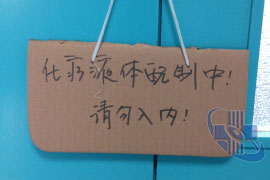 化疗液体配制中!
请勿入内!